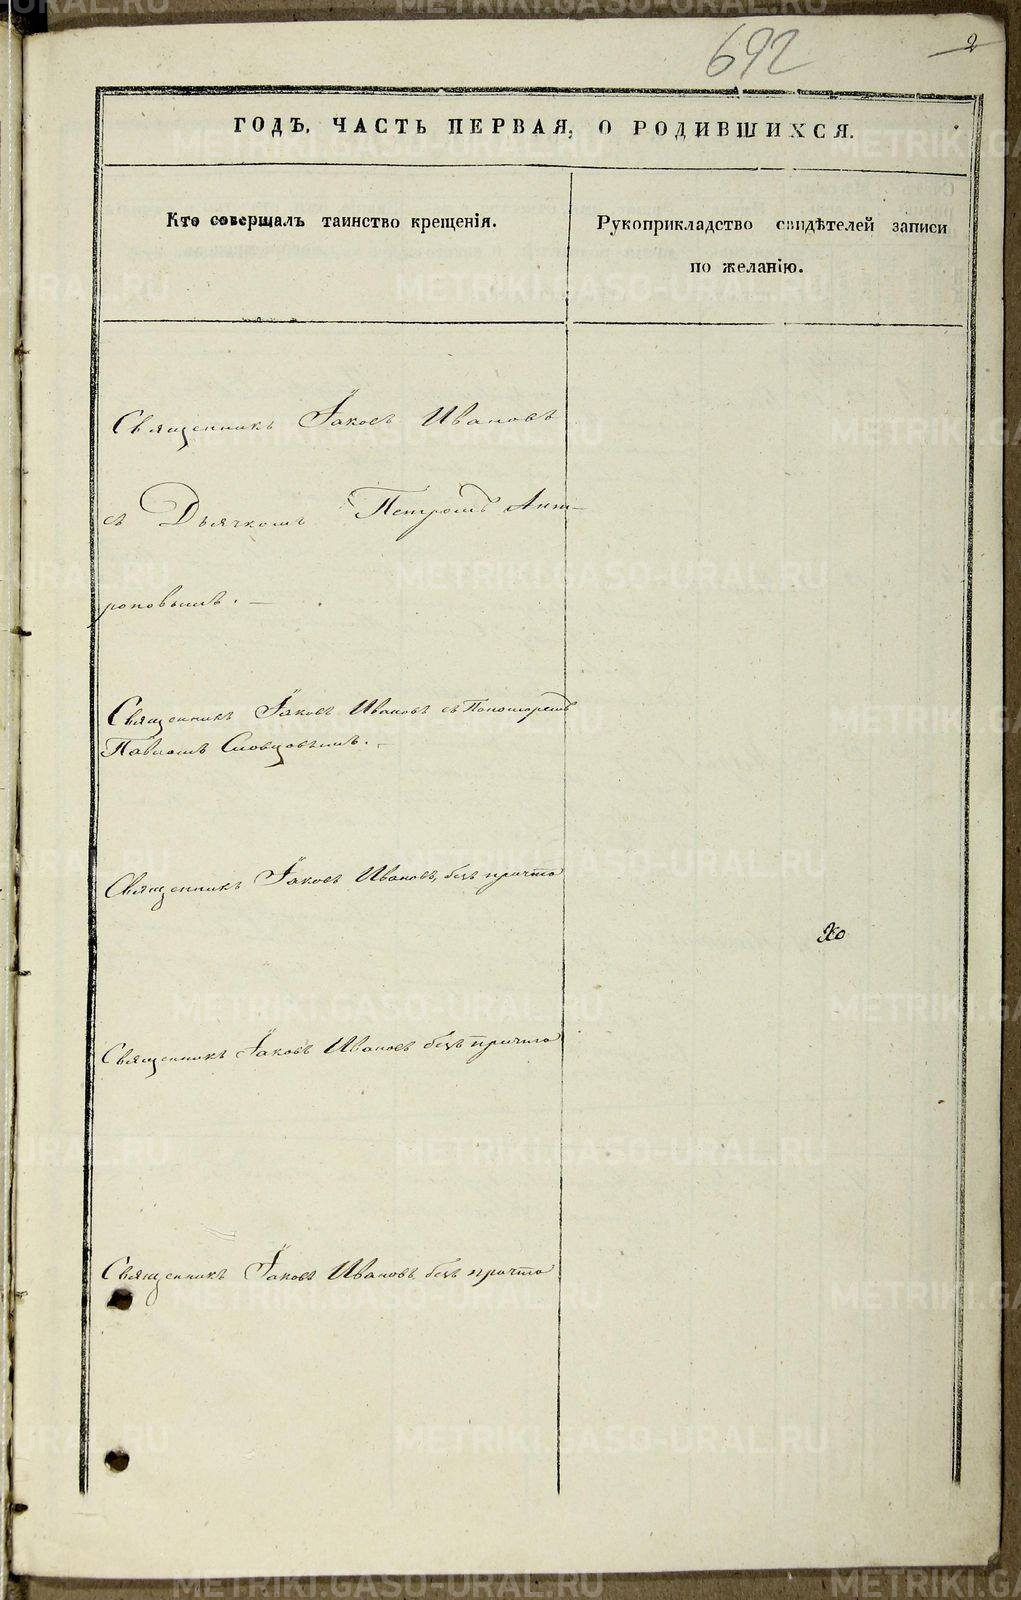 692
2
ГОДЪ, ЧАСТЬ ПЕРВАЯ, О РОДИВШИХСЯ.
Кто совершалъ таинство крещенія.
Рукоприкладство свидѣтелей записи
по желанію.
Священникъ Іаковъ Ивановъ
съ Дьячкомъ Петромъ Ант-
роповымъ. —
Священникъ Іаковъ Ивановъ съ Пономаремъ
Павломъ Словцовымъ. —
Священникъ Іаковъ Ивановъ, безъ причта
Священникъ Іаковъ Ивановъ безъ причта
Священникъ Іаковъ Ивановъ, безъ причта
METRIKI.GASO-URAL.RU